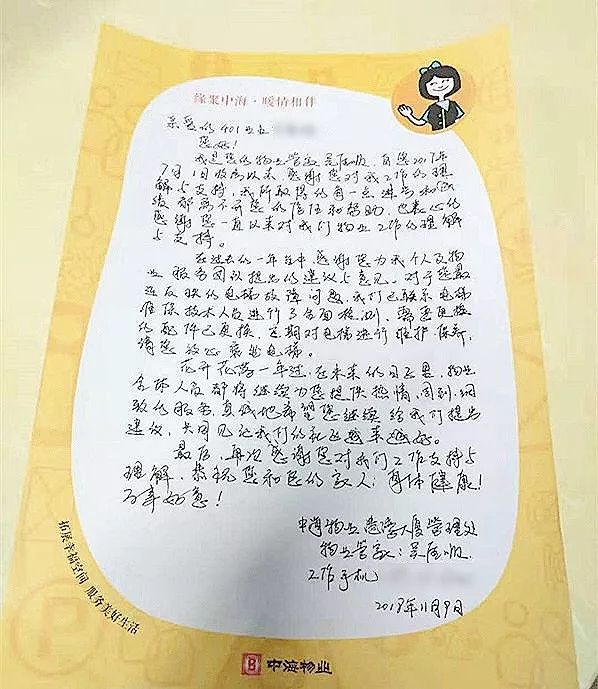 缘聚中海·暖情相伴
亲爱的401业主
您好！
我是您的物业管家吴 自从2017年
7月1日收房以来，感谢您对我工作的理
解与支持，我所取得的每一点进步和成
绩都离不开您的信任和帮助，也衷心的
感谢您一直以来对我们物业工作的理解
与支持。
在过去的一年当中感谢您为我个人及物
业服务团队提出的建议与意见。对于您最
近反映的电梯故障问题，我们已联系电梯
维保技术人员进行了全面检测，需要更换
的配件已更换，定期对电梯进行维护保养，
请您放心乘坐电梯。
花开花落一年过，在未来的日子里，物业
全体人员都将继续为您提供热情、周到、细
致的服务，真诚地希望您继续给我们提出
建议，共同见证我们的社区越来越好。
最后，再次感谢您对我们工作支持与
理解，恭祝您和您的家人：身体健康！
万事如意！
中海物业 大厦管理处
物业管家：吴
工作手机
2018年11月9日
拓展幸福空间 服务美好生活
中海物业